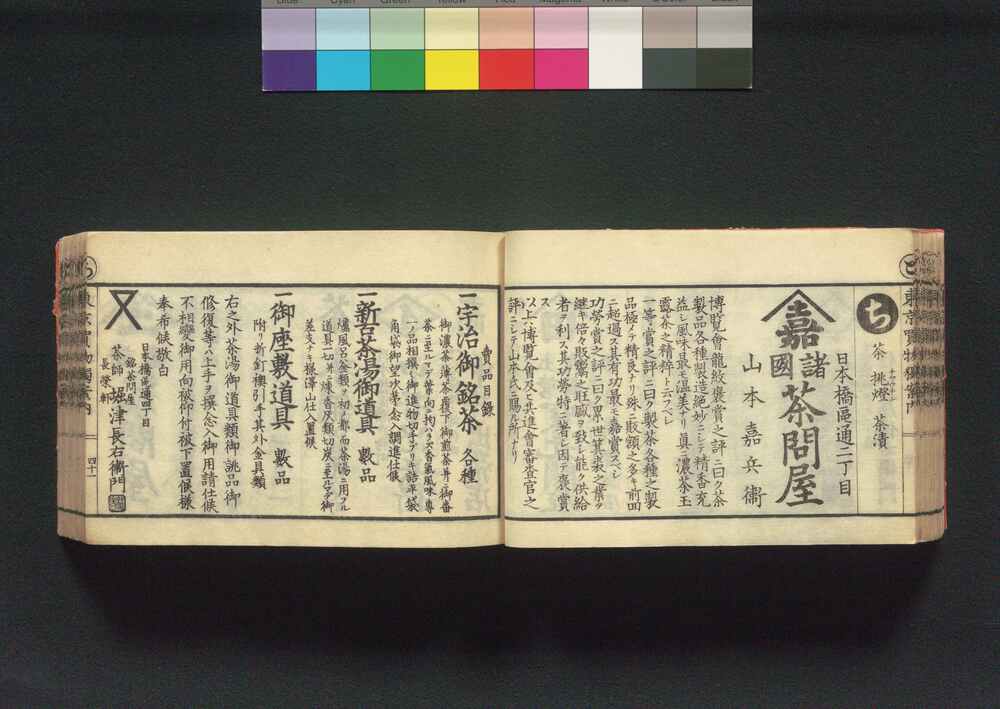 ち
茶 挑燈 茶漬
日本橋區通二丁目
嘉
諸國
茶問屋
山本嘉兵衞
博覧會龍紋褒賞之評ニ曰ク茶
製品各種製造絶妙ニシテ精香充
益シ風味最モ温美ナリ眞ニ濃茶玉
露茶之精粹ト云フベシ
一等賞之評ニ曰ク製茶各種之製
品極メテ精良ナリ殊ニ販額之多キ前回
ニ超過ス其有功最モ嘉賞スベシ
功勞賞之評ニ曰ク累世其業之業ヲ
継キ倍々販鬻之旺盛ヲ致シ能ク供給
者ヲ利ス其功勞特ニ著シ因テ褒賞
ス
以上博覧會及ヒ共進會審査官之
評ニシテ山本氏ニ賜ル所ナリ
賣品目録
一宇治御銘茶 各種
御濃茶薄茶篩下御煎茶并ニ御番
茶ニ至ルマデ葉向ニ拘ハラズ香氣風味專
一ノ品相撰ミ御進物切手ブリキ詰平袋
角袋御望次第念入調進仕候
一新古茶湯御道具 數品
爐風呂金類ヲ初メ都而茶湯ニ用フル
道具一切并ニ煉香炭類切炭ニ至ルマデ御
差支ナキ様澤山仕入置候
一御座敷道具 數品
附リ新釘櫻引手其外金具類
右之外茶湯御道具類御誂品御
修復等ハ上手ヲ撰ミ念入御用請仕候
不相變御用向被仰付被下置候様
奉希候敬白
日本橋區通四丁目
銘茶問屋
茶師 堀津長右衞門
長榮軒
四十一